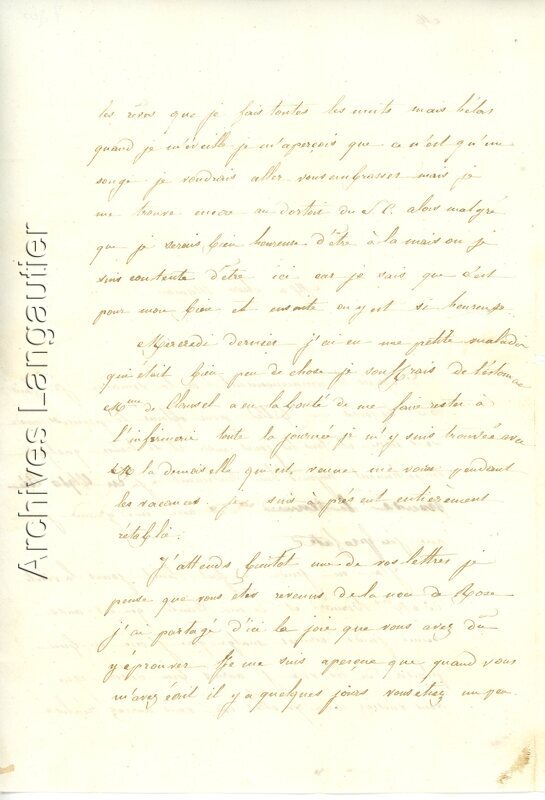 les rêves que je fais toutes les nuits mais hélas
quand je m'éveille je m'aperçois que ce n'est qu'un
songe je voudrais aller vous embrasser mais je
me trouve encore au dortoir du S C. alors malgré
que je serais bien heureuse d'être à la maison je
suis contente d'être ici car je sais que c'est
pour mon bien et ensuite on y est si heureuse.
Mercredi dernier j'ai eu une petite maladie
qui était bien peu de chose je souffrais de l'estomac
Mme de Clausel a eu la bonté de me faire rester à
l'infirmerie toute la journée je m'y suis trouvée avec
la demoiselle qui est venue me voir pendant
les vacances. je suis à présent entièrement
rétablie.
J'attends bientôt une de vos lettres je
pense que vous êtes revenus de la noce de Rose
j'ai partagé d'ici la joie que vous avez dû
y éprouver Je me suis aperçue que quand vous
m'avez écrit il y a quelques jours vous étiez un peu
Archives Langautier